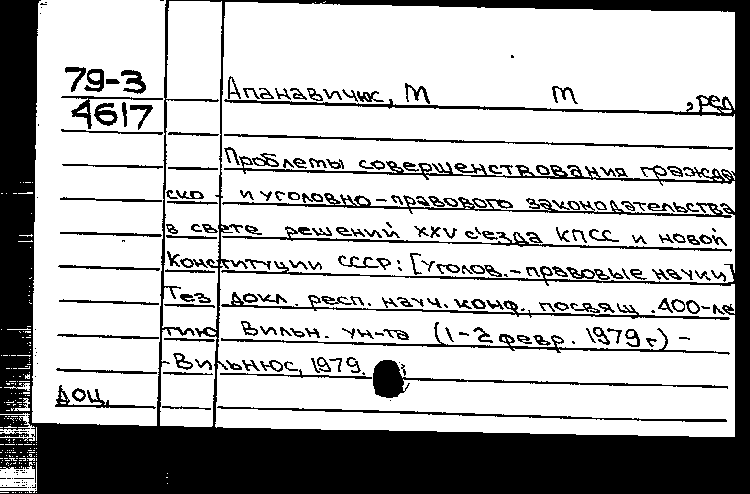 79-3 Апанавичюс, М М , ред
4617
Проблемы совершенствования гражда
ско - и уголовно-правового законодательства
в свете решений XXV съезда КПСС и новой
Конституции СССР: [Уголов.-правовые науки]
Тез докл. респ. науч. конф., посвящ. 400-ле
тию Вильн. ун-та (1-2 февр. 1979 г) -
-Вильнюс, 1979.
доц.